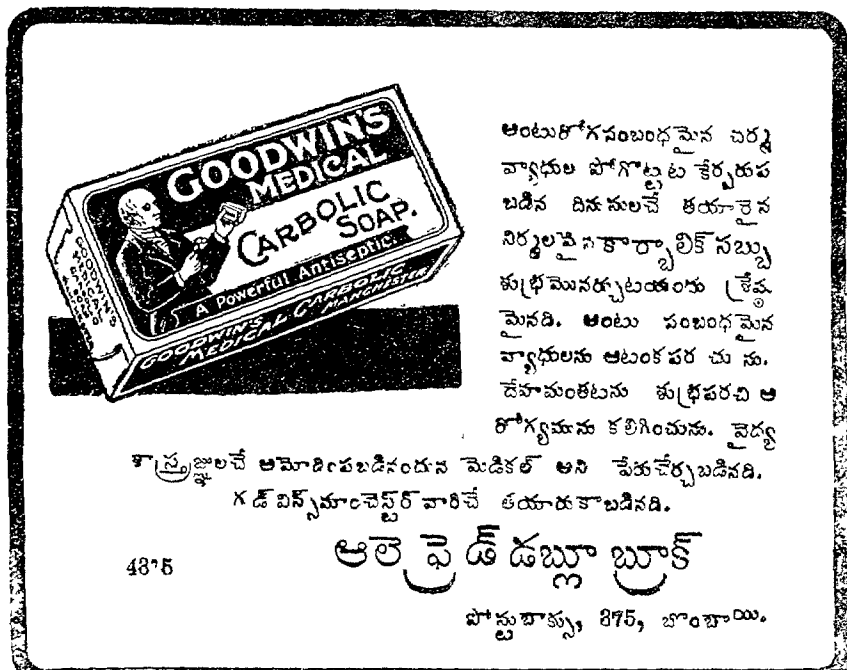 GOODWIN'S
MEDICAL
CARBOLIC
SOAP.
A Powerful Antiseptic.
GOODWIN'S
MEDICAL CARBOLIC
MANCHESTER
అంటురోగసంబంధమైన చర్మ
వ్యాధుల పోగొట్టుట కేర్పరుప
బడిన దినుసులచే తయారైన
నిర్మలమైన కార్బాలిక్ సబ్బు
శుభ్రమొనర్చుటయందు శ్రేష్ఠ
మైనది. అంటు సంబంధమైన
వ్యాధులను ఆటంకపర చు ను.
దేహమంతటను శుభ్రపరచి ఆ
రోగ్యమును కలిగించును. వైద్య
శాస్త్రజ్ఞులచే ఆమోదింపబడినందున మెడికల్ అని పేరుచేర్చబడినది.
గుడ్ విన్స్ మాంచెస్టర్ వారిచే తయారుకాబడినది.
ఆలె ఫ్రైడ్ డబ్లూ బ్రూక్
4375
పోస్టుబాక్సు, 375, బొంబాయి.